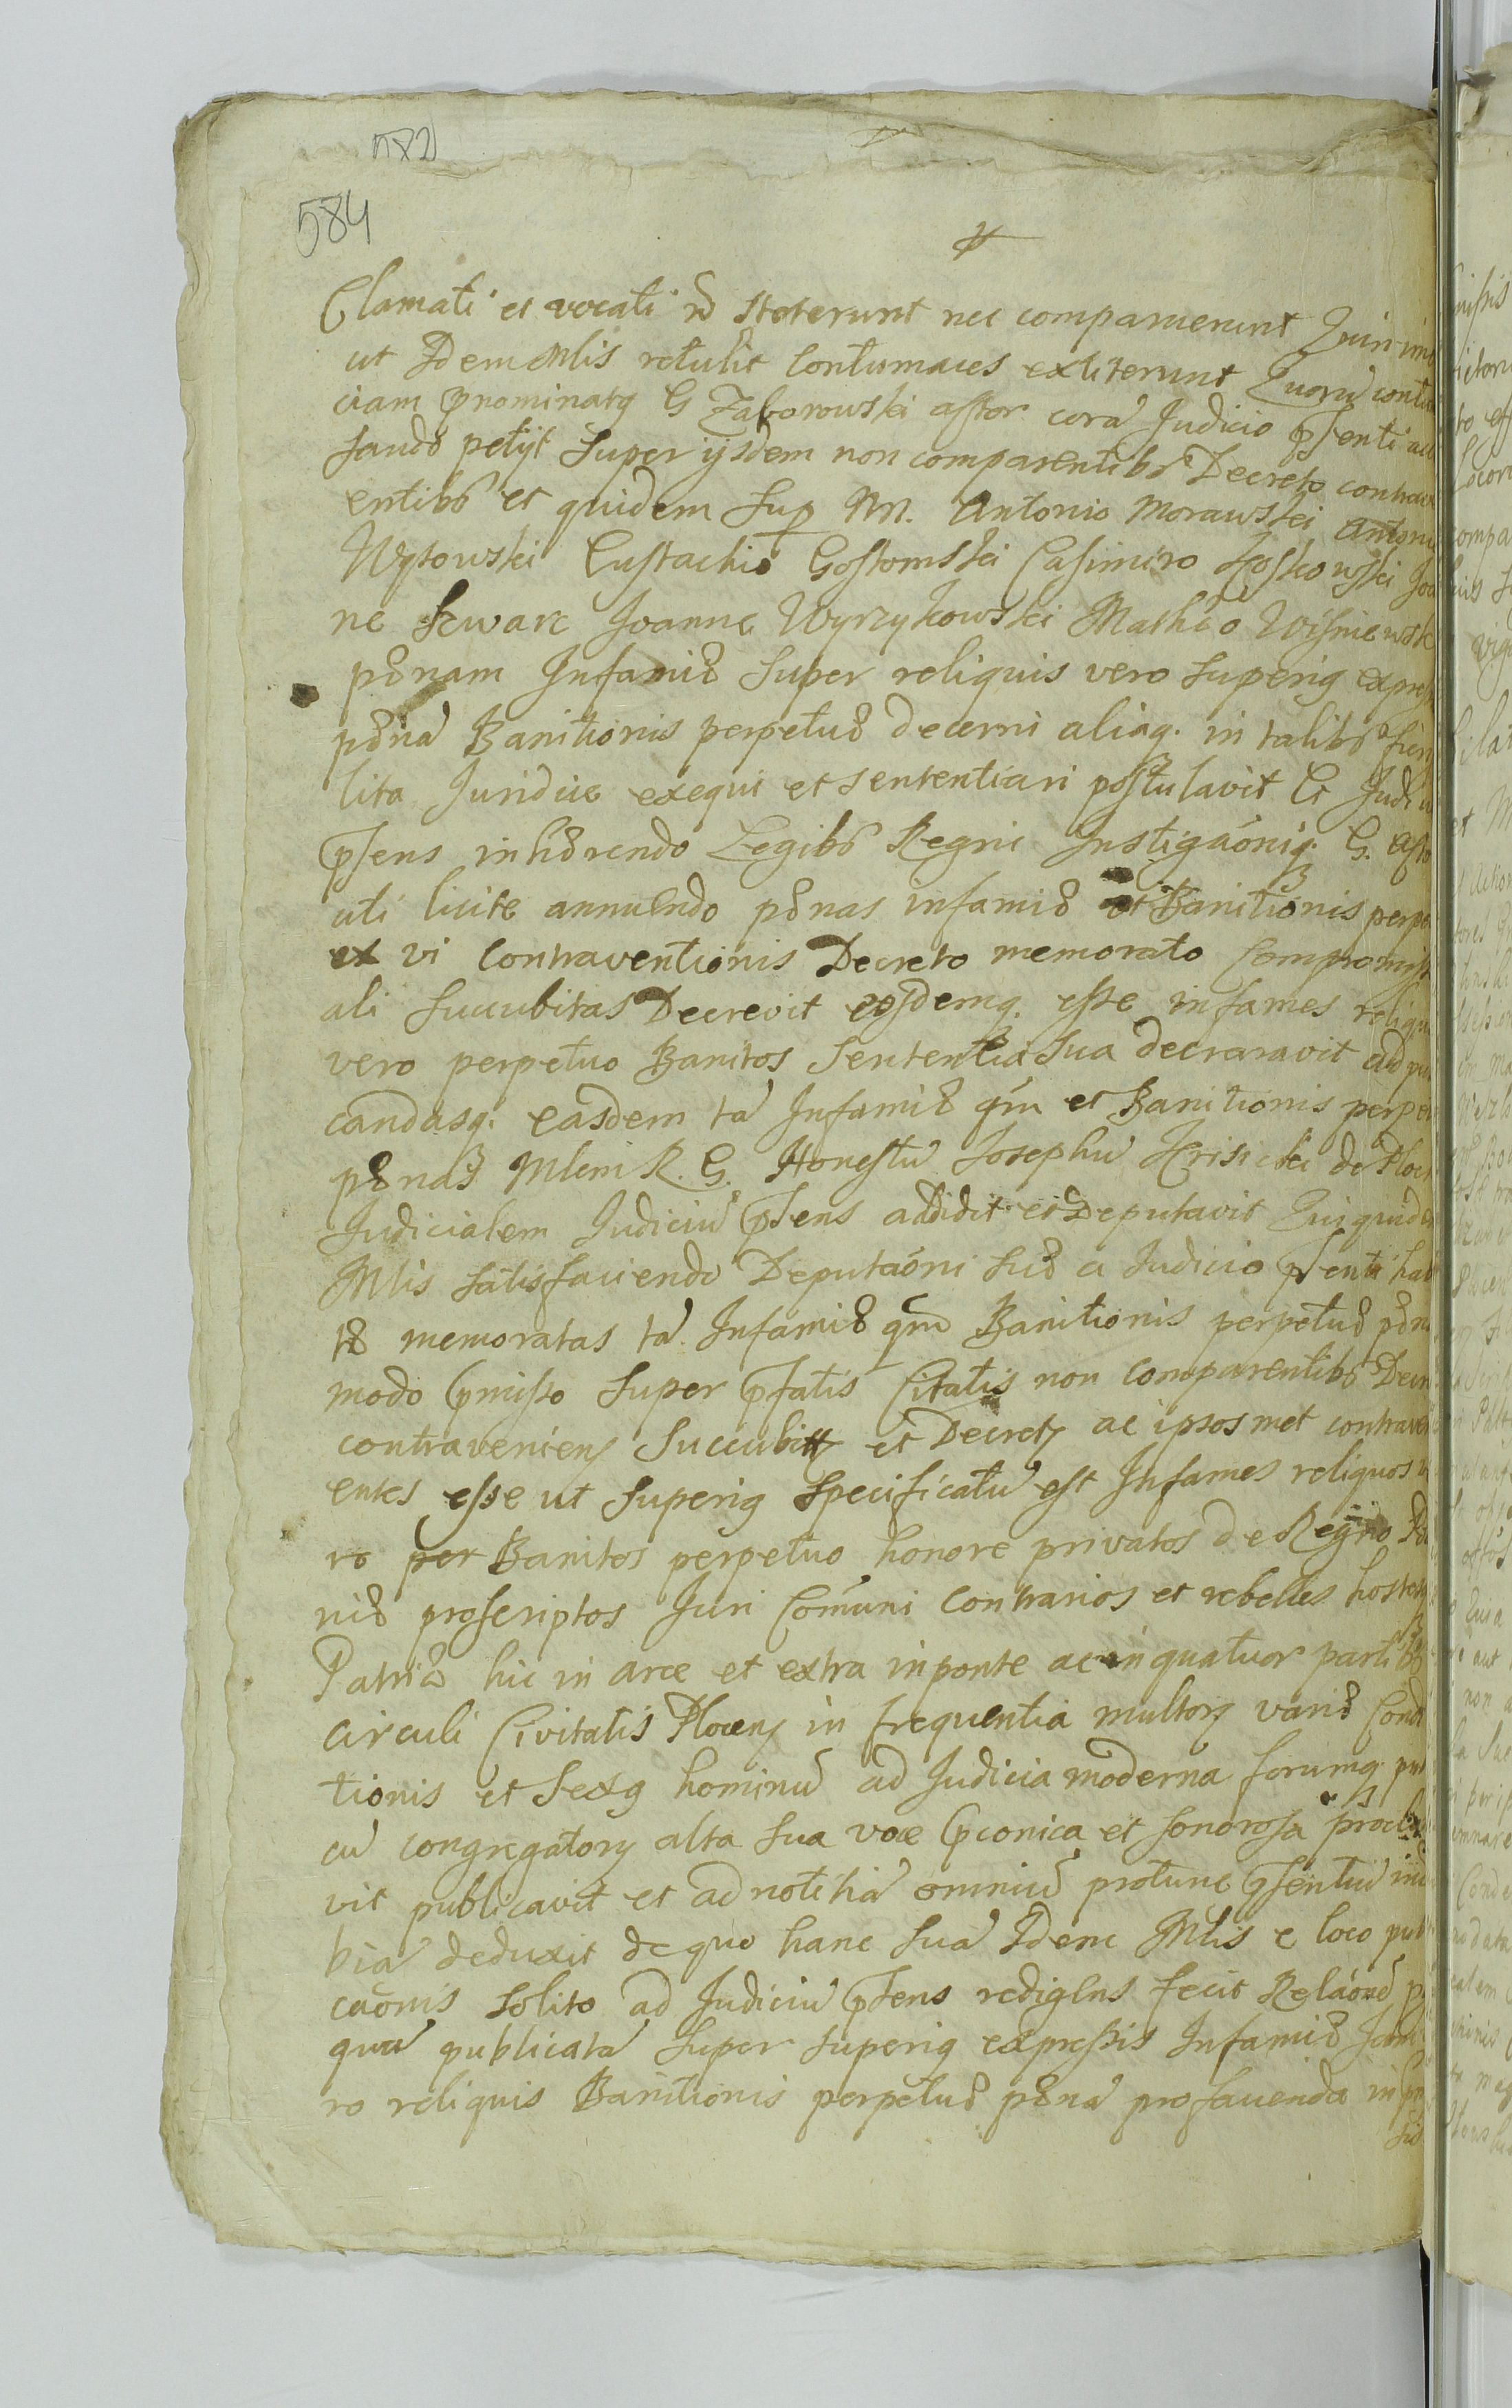 582
584
Clamati et vocati nō steterunt nec comparuerunt Quin im̄o
ut Idem Mlis retulit Contumaces extiterunt Quorū contu
ciam p̱nominatꝯ G Zaborowski aſtor corā Judicio p̱ſenti acc
sando petijt Super ijsdem non comparentibꝰ Decreto contrave
entibꝰ et quidem Sup̱ NN. Antonio Morawski Antoni
Eustachio Gostomski Casimiro Joa
ne Szwarc Joanne Wyrzykowski Mathæo Wiſniewsk
pœnam Infamiæ Super reliquis vero Superiꝯ expreſ
pœnā Banitionis perpetuæ decerni aliaq. in talibꝰ
lita Juridice exequi et sententiari poſtulavit Et Judi
p̱ſens inhærendo Legibꝰ Regni Instigaōniq. G. Aſto
uti licite annuendo pœnas infamiæ et Banitionis perpe
ex vi Contraventionis Decreto memorato Compromiſſ
ali Succubitas Decrevit eosdemq. eſſe infames reliqu
vero perpetuo Banitos Sententia Sua decraravit ad pu
candasq. easdem tā Infamiæ qm̄ et Banitionis perpe
pœnas Mlem R. G. Honeſtū Josephū Krisicki de Ploc
Judicialem Judiciū p̱ſens addidit et Deputavit Qui quide
Mlis satisfaciendo Deputaōni Suæ a Judicio p̱ſenti hab
tæ memoratas tā Infamiæ qm̄ Banitionis perpetuæ pœn
modo p̱miſſo Super p̱fatis Citatis non Comparentibꝰ Decr
contravenienꝭ Succubitꝭ et Decretꝭ ac ipsosmet contrave
entes eſſe ut Superiꝯ Specificatū eſt Infames reliquos v
ro per Banitos perpetuo honore privatos de Regno Po
niæ proſcriptos Juri Com̄uni Contrarios et rebelles hostesq
Patriæ hic in arce et extra in ponte ac in quatuor partibꝰ
circuli Civitatis Plocenꝭ in frequentia multorꝭ variæ Condi
tionis et Sexꝯ hominū ad Judicia moderna forumq pub
cū congregatorꝭ alta Sua voce p̱conica et Sonorosa procla
vit publicavit et ad notitiā omniū protunc p̱ſentiū indu
biā deduxit de quo hanc Suā Idem Mlis e loco publi
caōnis Solito ad Judiciū p̱ſens rediens fecit Relaōnē p
quā publicatā Super Superiꝯ expreſſis Infamiæ
ro reliquis Banitionis perpetuæ pœnā pro facienda in